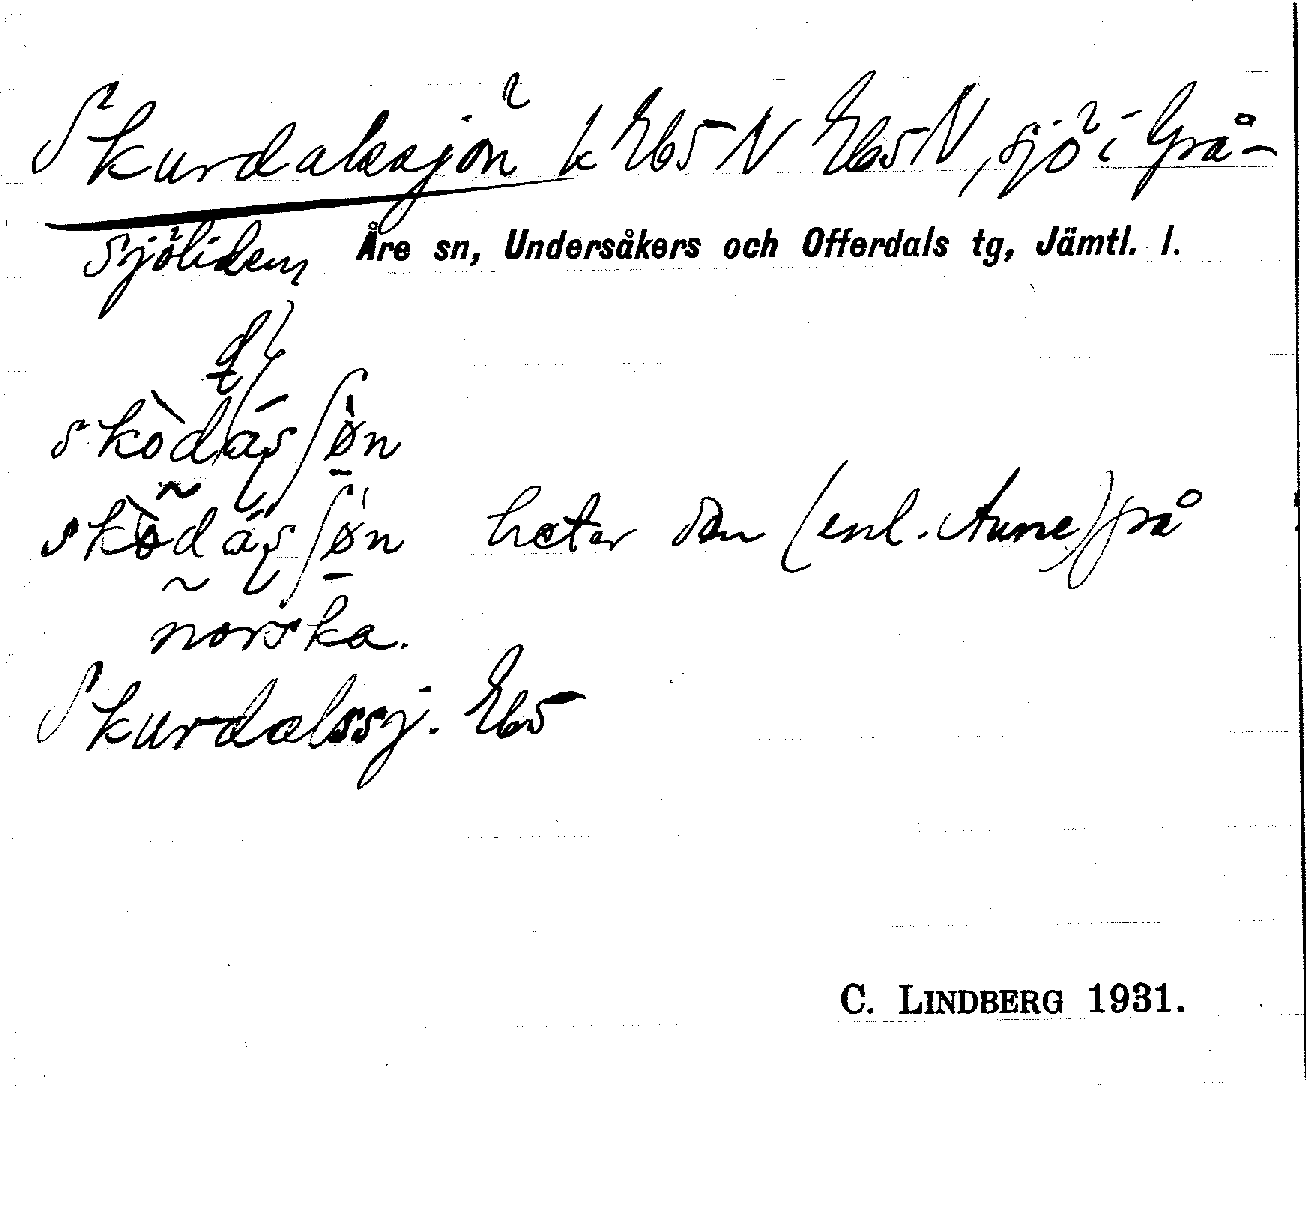 Skurdalssjön k E65N E65N, sjö i Grå-
sjöliden Åre sn, Undersåkers och Offerdals tg, Jämtl. l.
heter den (enl. Aune) på
norska.
Skurdalssj. E65
C. LINDBERG 1931.